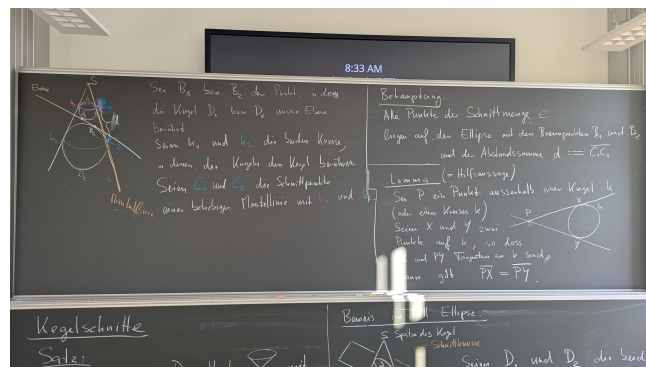 8:33 AM
Ebene
S
Sei B₁ bzw. B₂ der Punkt, in dem
die Kugel D₁ bzw. D₂ unsere Ebene
berührt
Seien k₁ und k₂ die beiden Kreise,
in denen die Kugeln den Kegel berühren.
Seien C₁ und C₂ die Schnittpunkte
einer beliebigen Mantellinie mit k₁ und
Mantellinie
Behauptung:
Alle Punkte der Schnittmenge e
liegen auf der Ellipse mit den Brennpunkten B₁ und B₂
und der Abstandssumme d := C₁C₂
Lemma (= Hilfsaussage)
Sei P ein Punkt ausserhalb einer Kugel k
(oder eines Kreises k)
Seien X und Y zwei
Punkte auf k, so dass
und PY Tangenten an k sind,
dann gilt PX = PY.
P
X
k
Y
Kegelschnitte
Satz:
Beweis Ellipse:
S Spitze des Kegel
Schnittkurve
Seien D₁ und D₂ die beid
mit